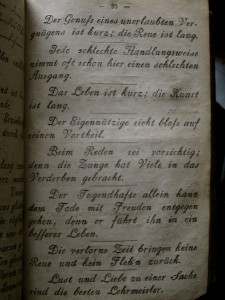 93
Der Genuß eines unerlaubten Ver-
gnügens ist kurz; die Reue ist lang.
Jede schlechte Handlungsweise
nimmt oft schon hier einen schlechten
Ausgang.
Das Leben ist kurz; die Kunst
ist lang.
Der Eigennützige sieht bloß auf
seinen Vortheil.
Beim Reden sei vorsichtig;
denn die Zunge hat Viele in das
Verderben gebracht.
Der Tugendhafte allein kann
dem Tode mit Freuden entgegen
gehen, denn er führt ihn in ein
besseres Leben.
Die verlorne Zeit bringen keine
Reue und kein Flehn zurück.
Lust und Liebe zu einer Sache
sind die besten Lehrmeister.